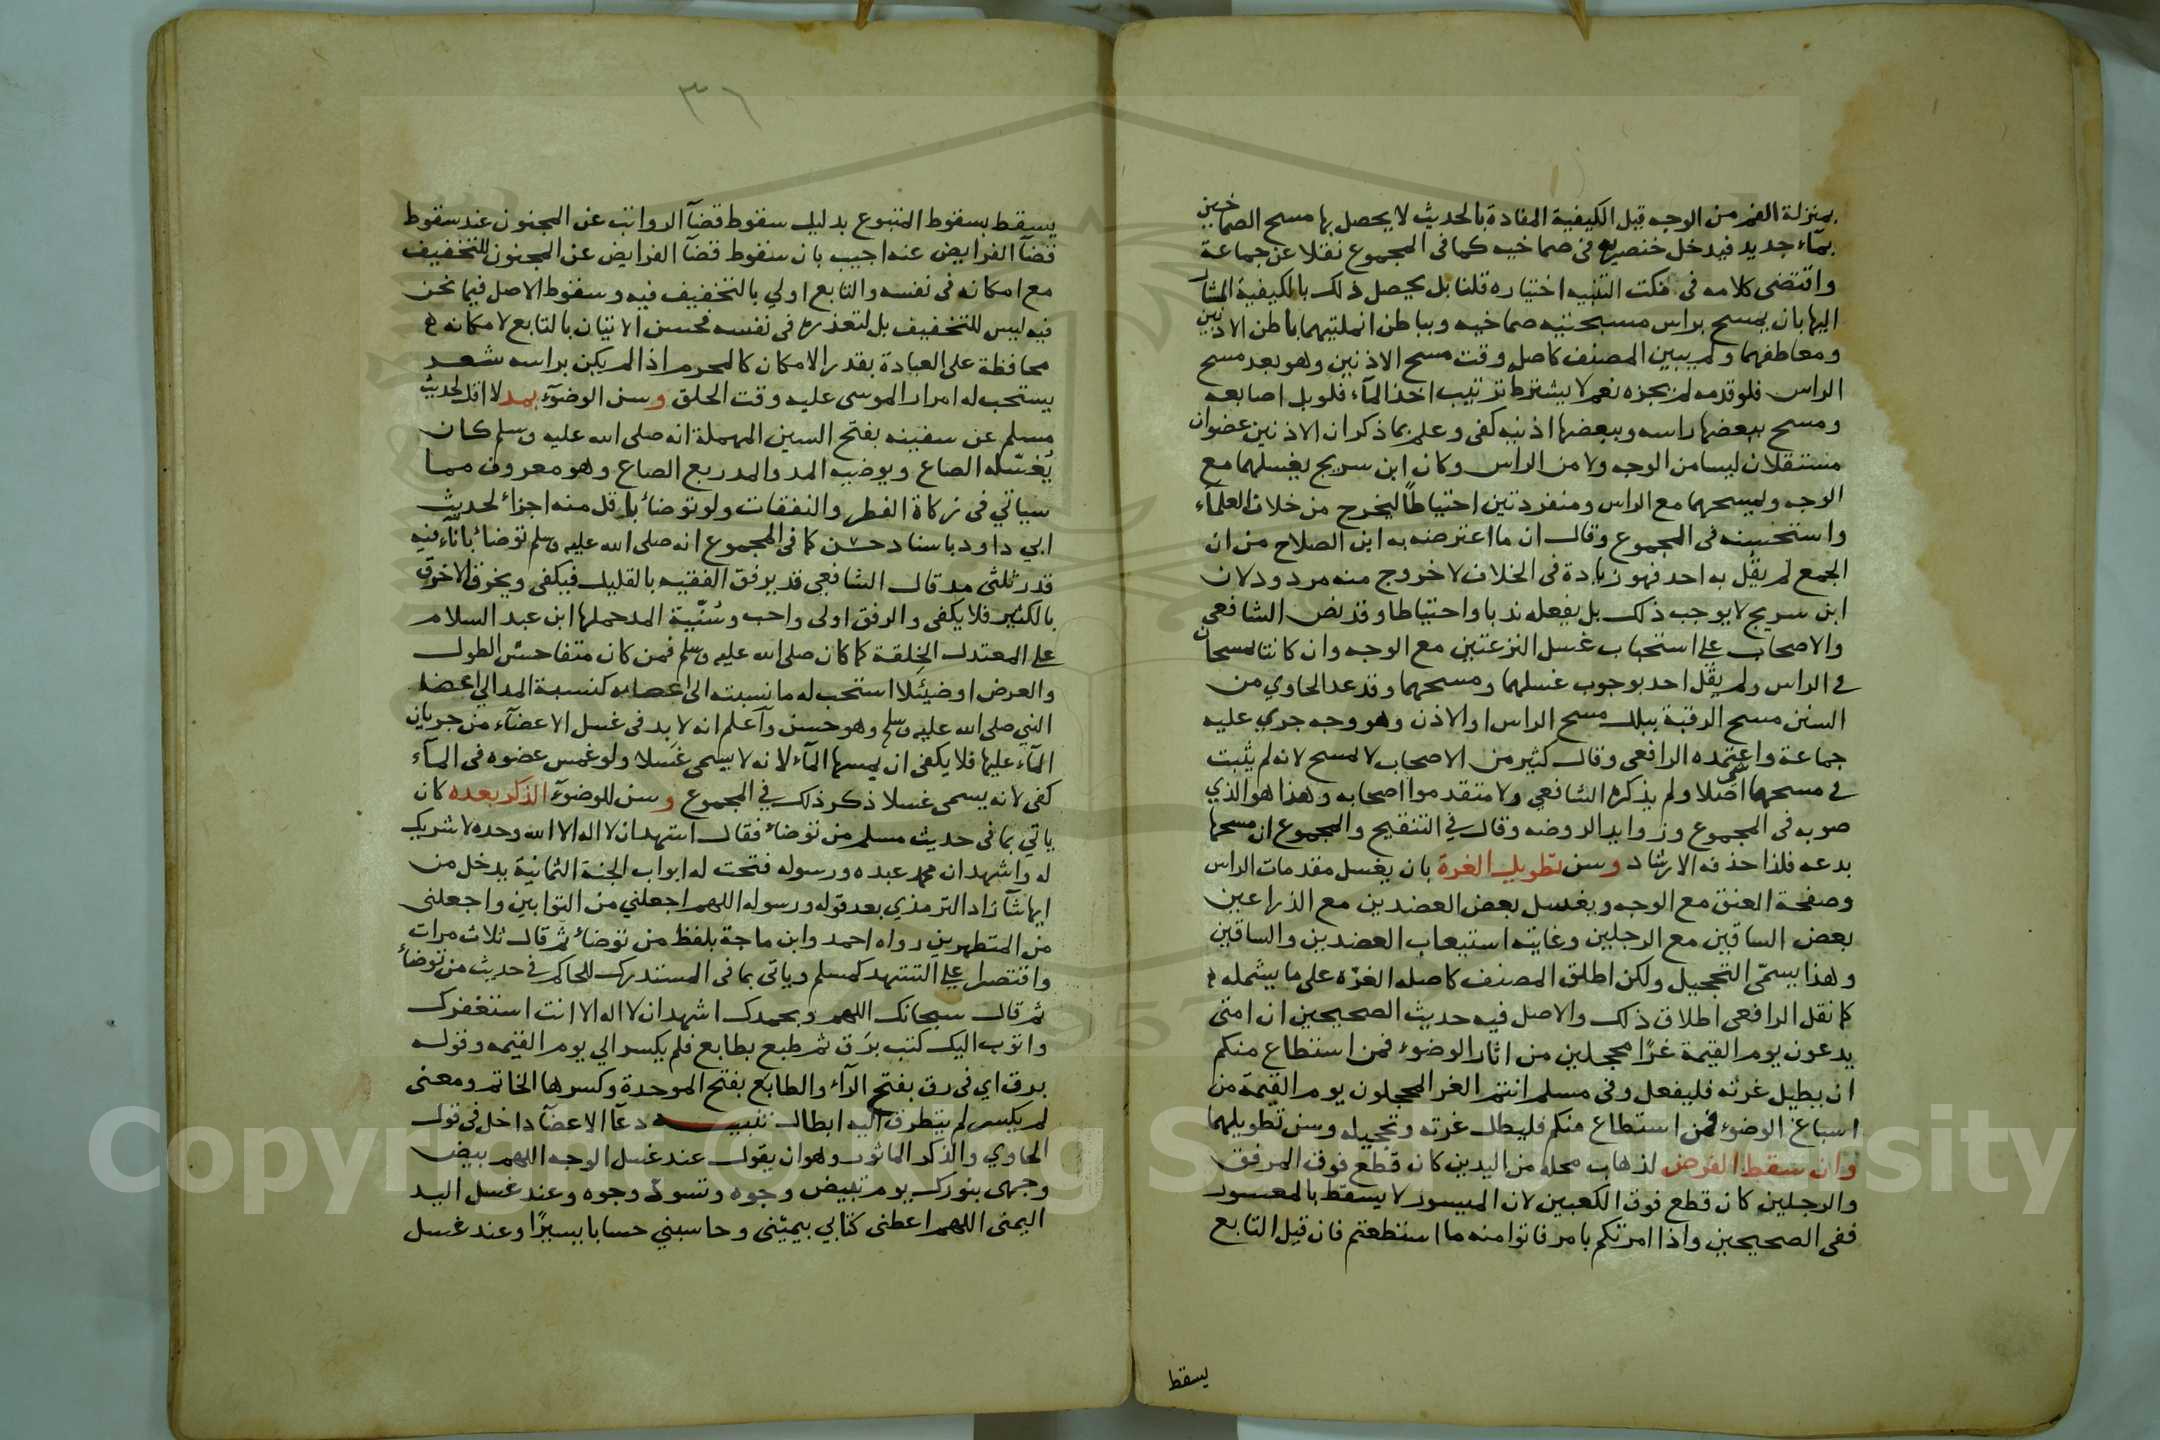 بمنزلة الفم من الوجه قيل الكيفية المفادة بالحديث لا يحصل بها مسح الصماخين
بماء جديد فيدخل خنصريه في صماخيه كما في المجموع نقلا عن جماعة
واقتضى كلامه في نكت التنبيه اختياره قلنا بل يحصل ذلك بالكيفية المشار
اليها بان يمسح براس مسبحتيه صماخيه وبباطن انملتيهما باطن الاذنين
ومعاطفهما ولم يبين المصنف كاصله وقت مسح الاذنين وهو بعد مسح
الراس فلو قدمه لم يجزه نعم لا يشترط ترتيب اخذ الماء فلو بل اصابعه
ومسح ببعضها راسه وببعضها اذنيه كفى وعلم بما ذكر ان الاذنين عضوان
مستقلان ليسا من الوجه ولا من الراس وكان ابن سريج يغسلهما مع
الوجه ويمسحهما مع الراس ومنفردتين احتياطًا ليخرج من خلاف العلماء
واستحسنه في المجموع وقال ان ما اعترضه به ابن الصلاح من ان
الجمع لم يقُل به احد فهو زيادة في الخلاف لا خروج منه مردود لان
ابن سريج لا يوجب ذلك بل يفعله ندبا واحتياطا وقد نص الشافعي
والاصحاب على استحباب غسل النزعتين مع الوجه وان كانتا يمسحان
في الراس ولم يقُل احد بوجوب غسلهما ومسحهما وقد عد الحاوي من
السنن مسح الرقبة ببلل مسح الراس او الاذن وهو وجه جري عليه
جماعة واعتمده الرافعي وقال كثير من الاصحاب لا مسح لانه لم يثبت
في مسحها شي اصلا ولم يذكره الشافعي ولا متقدموا اصحابه وهذا هو الذي
صوبه في المجموع وزوايد الروضه وقال في التنقيح والمجموع ان مسحها
بدعه فلذا حذفه الارشاد وسن تطويل الغرة بان يغسل مقدمات الراس
وصفحة العنق مع الوجه ويغسل بعض العضدين مع الذراعين
بعض الساقين مع الرجلين وغايته استيعاب العضدين والساقين
وهذا يسمّى التحجيل ولكن اطلق المصنف كاصله الغرّة على ما يشمله
كما نقل الرافعي اطلاق ذلك والاصل فيه حديث الصحيحين ان امتي
يدعون يوم القيمة غرًا محجلين من اثار الوضوء فمن استطاع منكم
ان يطيل غرته فليفعل وفي مسلم انتم الغر المحجلون يوم القيمة من
اسباغ الوضوء فمن استطاع منكم فليطل غرته وتحجيله وسن تطويلهما
وان سقط الفرض لذهاب محله من اليدين كان قطع فوق المرفق
والرجلين كان قطع فوق الكعبين لان الميسور لا يسقط بالمعسور
ففي الصحيحين واذا امرتكم بامر فاتوا منه ما استطعتم فان قيل التابع
يسقط
٣٦
يسقط بسقوط المتبوع بدليل سقوط قضآ الرواتب عن المجنون عند سقوط
قضآ الفرايض عنه اجيب بان سقوط قضآ الفرايض عن المجنون للتخفيف
مع امكانه في نفسه والتابع اولي بالتخفيف فيه وسقوط الاصل فيما نحن
فيه ليس للتخفيف بل لتعذره في نفسه فحسن الاتيان بالتابع لامكانه
محافظة على العبادة بقدر الامكان كالمحرم اذا لم يكن براسه شعر
يستحب له امرار الموسى عليه وقت الحلق وسن الوضوّء بمد لا اقل لحديث
مسلم عن سفينه بفتح السين المهملة انه صلى الله عليه وسلم كان
يُغسّله الصاع ويوضيه المد والمد ربع الصاع وهو معروف مما
سياتي في زكاة الفطر والنفقات ولو توضأ باقل منه اجزأ لحديث
ابي داود باسناد حسن كما في المجموع انه صلى الله عليه وسلم توضأ باناّء فيه
قدر ثلثي مد قال الشافعي قد يرفق الفقيه بالقليل فيكفي ويخرق الاخرق
بالكثير فلا يكفي والرفق اولى واحب وسُنّية المد حملها ابن عبد السلام
على المعتدل الخِلقة كما كان صلى الله عليه وسلم فمن كان متفاحش الطول
والعرض او ضيئلا استحب له ما نسبته الى اعضايه كنسبة المد الي اعضا
النبي صلى الله عليه وسلم وهو حسن وآعلم انه لا بد في غسل الاعضآء من جريان
المآء عليها فلا يكفي ان يمسها المآء لانه لا يسمى غسلا ولو غمس عضوه في المآء
كفى لانه يسمى غسلا ذكر ذلك في المجموع وسن للوضوّء الذكر بعده كان
ياتي بما في حديث مسلم من توضأ فقال اشهد ان لا اله الا الله وحده لا شريك
له واشهد ان محمد عبده ورسوله فتحت له ابواب الجنة الثمانية يدخل من
ايها شآ زاد الترمذي بعد قوله ورسوله اللهم اجعلني من التوابين واجعلني
من المتطهرين رواه احمد وابن ماجة بلفظ من توضأ ثم قال ثلاث مرات
واقتصرا على التشهد كمسلم وياتى بما في المستدرك للحاكم في حديث من توضأ
ثم قال سبحانك اللهم وبحمدك اشهد ان لا اله الا انت استغفرك
واتوب اليك كتب برَق ثم طبع بطابع فلم يكسر الي يوم القيمه وقوله
برق اي في رق بفتح الرآء والطابَع بفتح الموحدة وكسرها الخاتم ومعنى
لم يكسر لم يتطرق اليه ابطال تنبيـــه دعآ الاعضآ داخل في قول
الحاوي والذكر الماثور وهو ان يقول عند غسل الوجه اللهم بيض
وجهى بنورك يوم تبيض وجوه وتسود وجوه وعند غسل اليد
اليمنى اللهم اعطني كتابي بيميني وحاسبني حسابا يسيرًا وعند غسل
Copyright © King Saud University